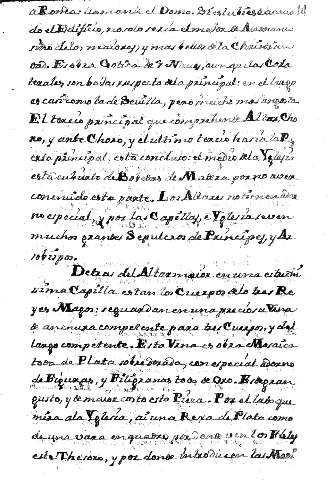 a Roma: llamanle el Domo. Si estubiese acava
do el Edificio, no solo seria el mejor de Alemania
sino de los maiores, y mas bellos de la Christian
dad. Es obra Gotica de 5 Naves, aunque las Cola
terales, son bajas respecto de la principal: en el largo
es casi como la de Sevilla, pero mucho mas angosta
El tercio principal que comprehende Altar, Cho
ro, y ante Choro, y el ultimo tercio hacia la P.
erta principal, está concluso: el medio de la Yglesia
está cubierto de Bovedas de Madera, por no aver
concluido esta parte. Los Altares no tienen cosa
no especial, y por las Capillas, e Yglesia se ven
muchos grandes Sepulcros de Principes, y Ar
obispos.
Detras del Altar maior en una
sima Capilla estan los Cuerpos de los tres Re
yes Magos: se guardan en una preciosa Urna
de anchura competente para tres Cuerpos, y del
largo competente. Esta Urna es obra Mosaica
toda de Plata sobredorada, con especial adorno
de Figuras, y Filigranas todo de Oro. Es de gran
gusto, y de maior costo esta Pieza. Por el lado que
mira a la Yglesia, ai una Rexa de Plata como
de una vara en quadro, por donde ven los Fieles
este Thesoro, y por donde introducen las